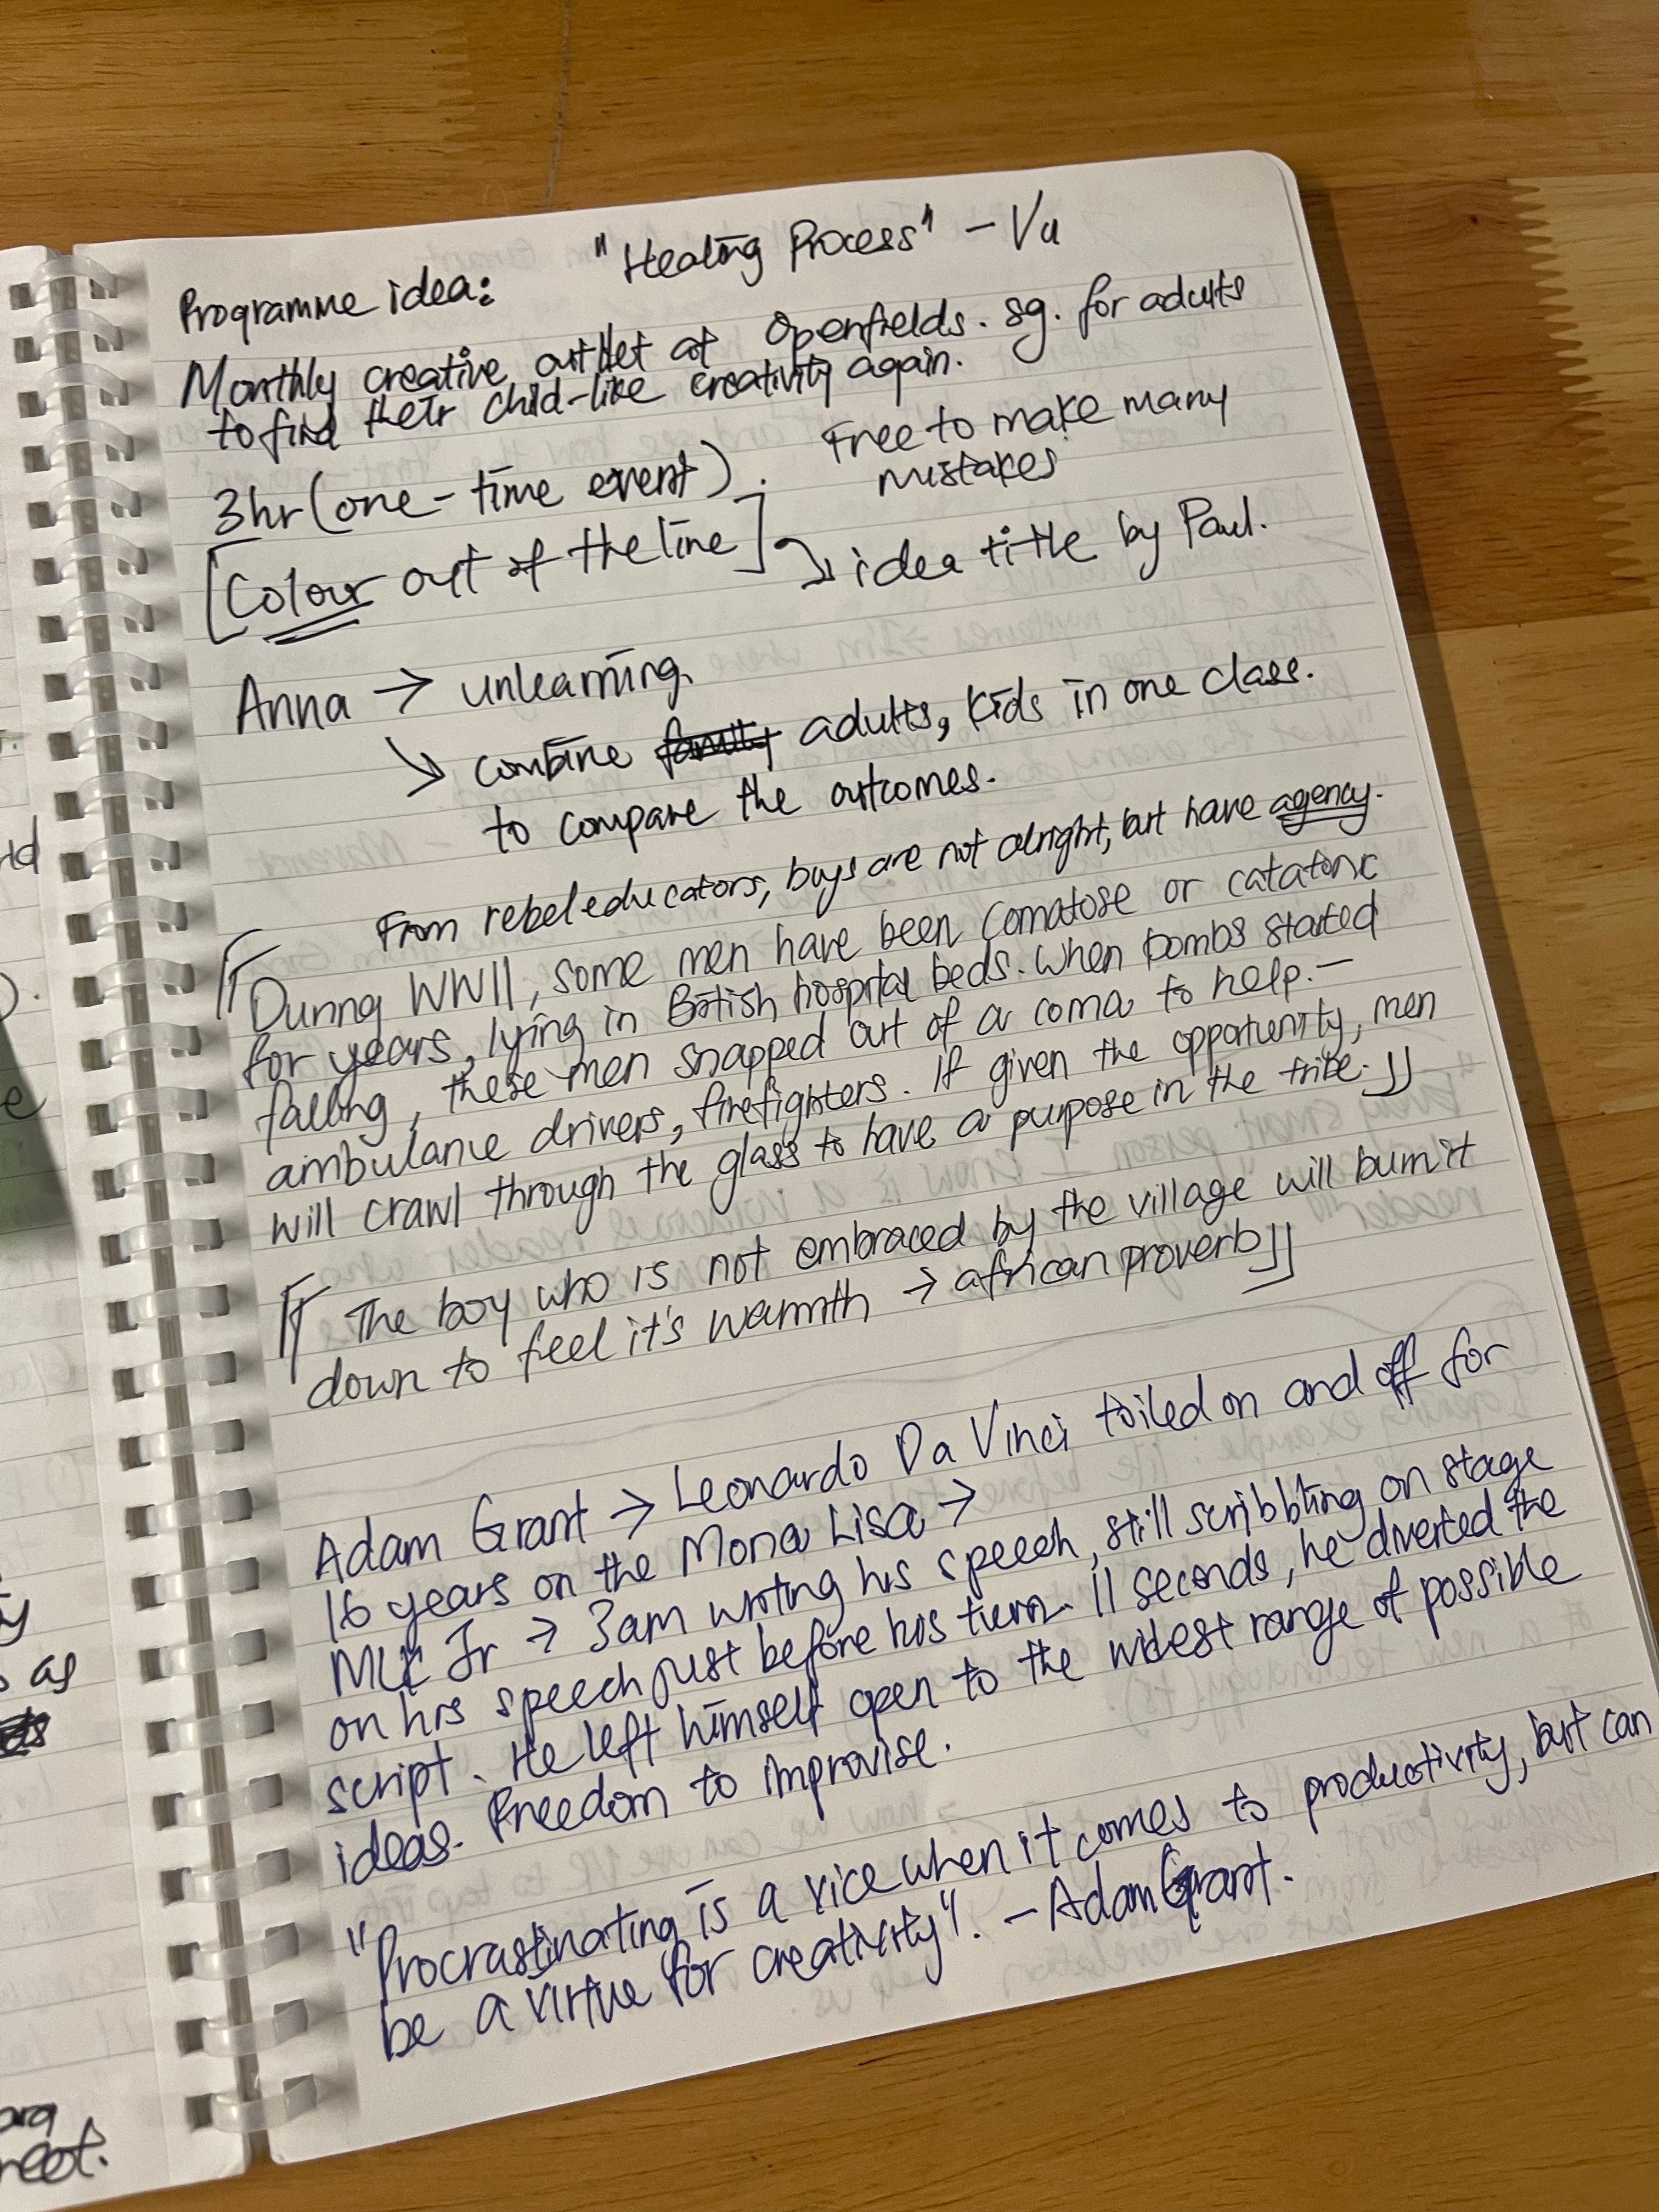 "Healing Process" - Vu
Programme idea:
Monthly creative outlet at Openfields.sg. for adults
to find their child-like creativity again.
3hr (one-time event).
Free to make many
mistakes
[Colour out of the line]
idea title by Paul.
Anna → unlearning.
↘ combine family adults, kids in one class.
to compare the outcomes.
From rebel educators, boys are not alright, but have agency.
During WWII, some men have been comatose or catatonic
for years, lying in British hospital beds. When bombs started
falling, these men snapped out of a coma to help. —
ambulance drivers, firefighters. If given the opportunity, men
will crawl through the glass to have a purpose in the tribe.
The boy who is not embraced by the village will burn it
down to feel it's warmth → african proverb
Adam Grant → Leonardo Da Vinci toiled on and off for
16 years on the Mona Lisa →
MLK Jr → 3am writing his speech, still scribbling on stage
on his speech just before his turn. 11 seconds, he diverted the
script. He left himself open to the widest range of possible
ideas. Freedom to improvise.
"Procrastinating is a vice when it comes to productivity, but can
be a virtue for creativity". - Adam Grant.